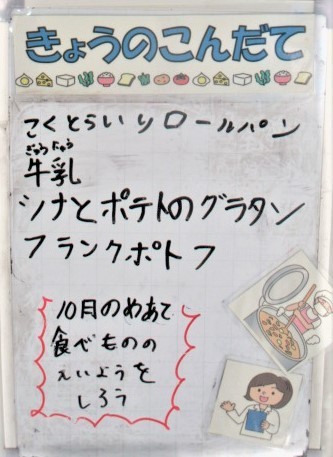 きょうのこんだて
こくとういりロールパン
ぎゅうにゅう
牛乳
ツナとポテトのグラタン
フランクポトフ
10月のめあて
食べものの
えいようを
しろう